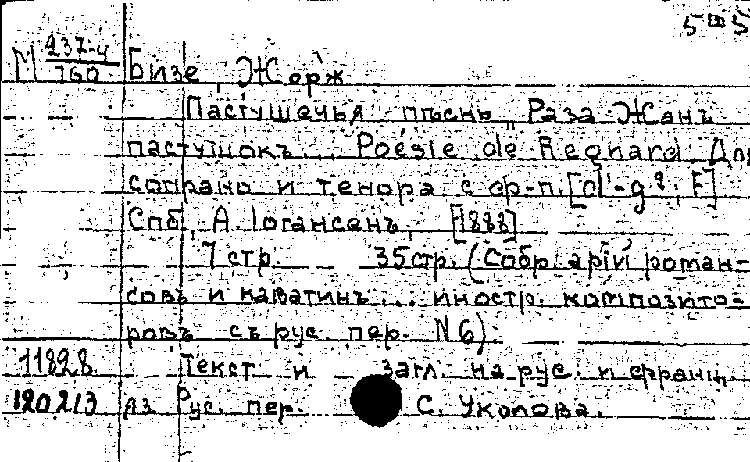 М 237-4/760 Бизе, Жорж
Пастушечья пѣснь „Раза Жанъ
пастушокъ... Poésie de Regnard Для
сопрано и тенора с фр-п. [d¹-g²; F]
Спб, А. Іогансенъ, [1888]
7 стр. 35стр. (Собр. арій роман-
совъ и каватинъ... иностр. композито-
ровъ съ рус. пер. N 6)
11828 Текст и загл. на рус. и франц.
120213 яз Рус. пер. С. Уколова.